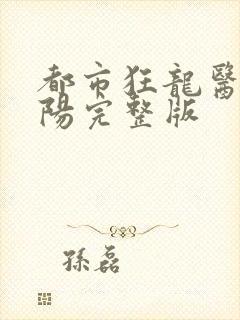 都市狂龍醫
陽完整版
孫磊